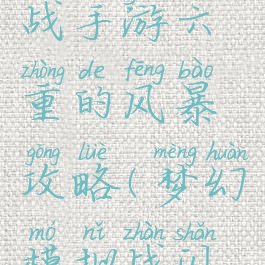 战手游六
zhòng de fēng bào
重的风暴
gōng lüè mèng huàn
攻略(梦幻
mó nǐ zhàn shǎn
模拟战闪